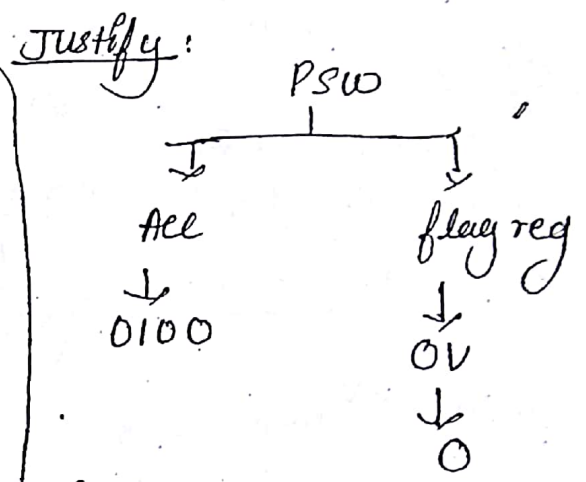 Justify:
PSW
Acc flag reg
0100 OV
0